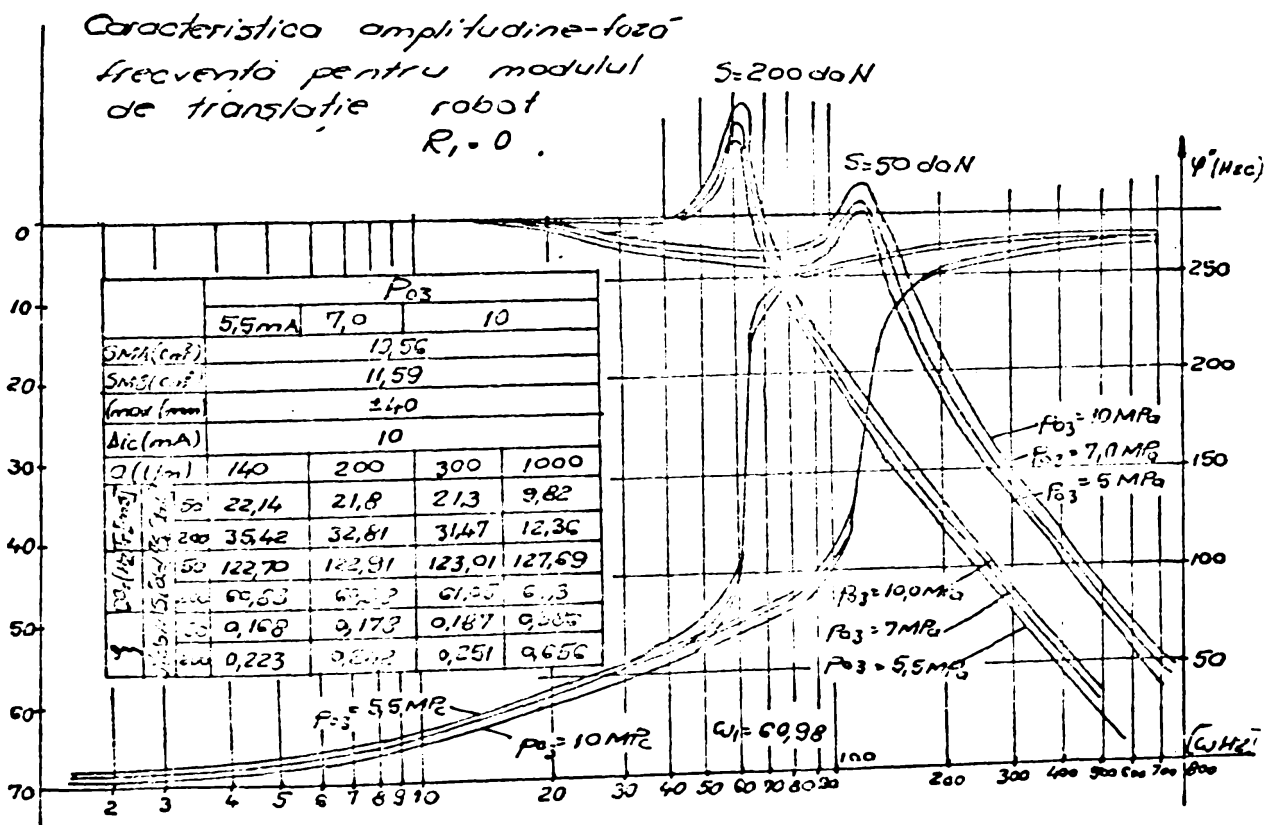 Caracteristica amplitudine-fază
frecvență pentru modulul
de translație robot
R₁ = 0 .
S=200 daN
S=50 daN
φ°(Hzc)
0
10
20
30
40
50
60
70
250
200
150
100
50
P03
5,5mA 7,0 10
SMA(cm²) 13,56
11,59
(mm) ±40
Δic(mA) 10
Q(l/m) 140 200 300 1000
50 22,14 21,8 21,3 9,82
200 35,42 32,81 31,47 12,36
50 122,70 122,91 123,01 127,69
0,168 0,173 0,187
200 0,223 0,251 0,656
p03=10MPa
p03=7,0MPa
p03=5MPa
p03=10,0MPa
p03=7MPa
p03=5,5MPa
p03=5,5MPa
p03=10MPa
ω₁=60,98
100
ωHz
2 3 4 5 6 7 8 9 10 20 30 40 50 60 70 80 90 200 300 400 500 600 700 800